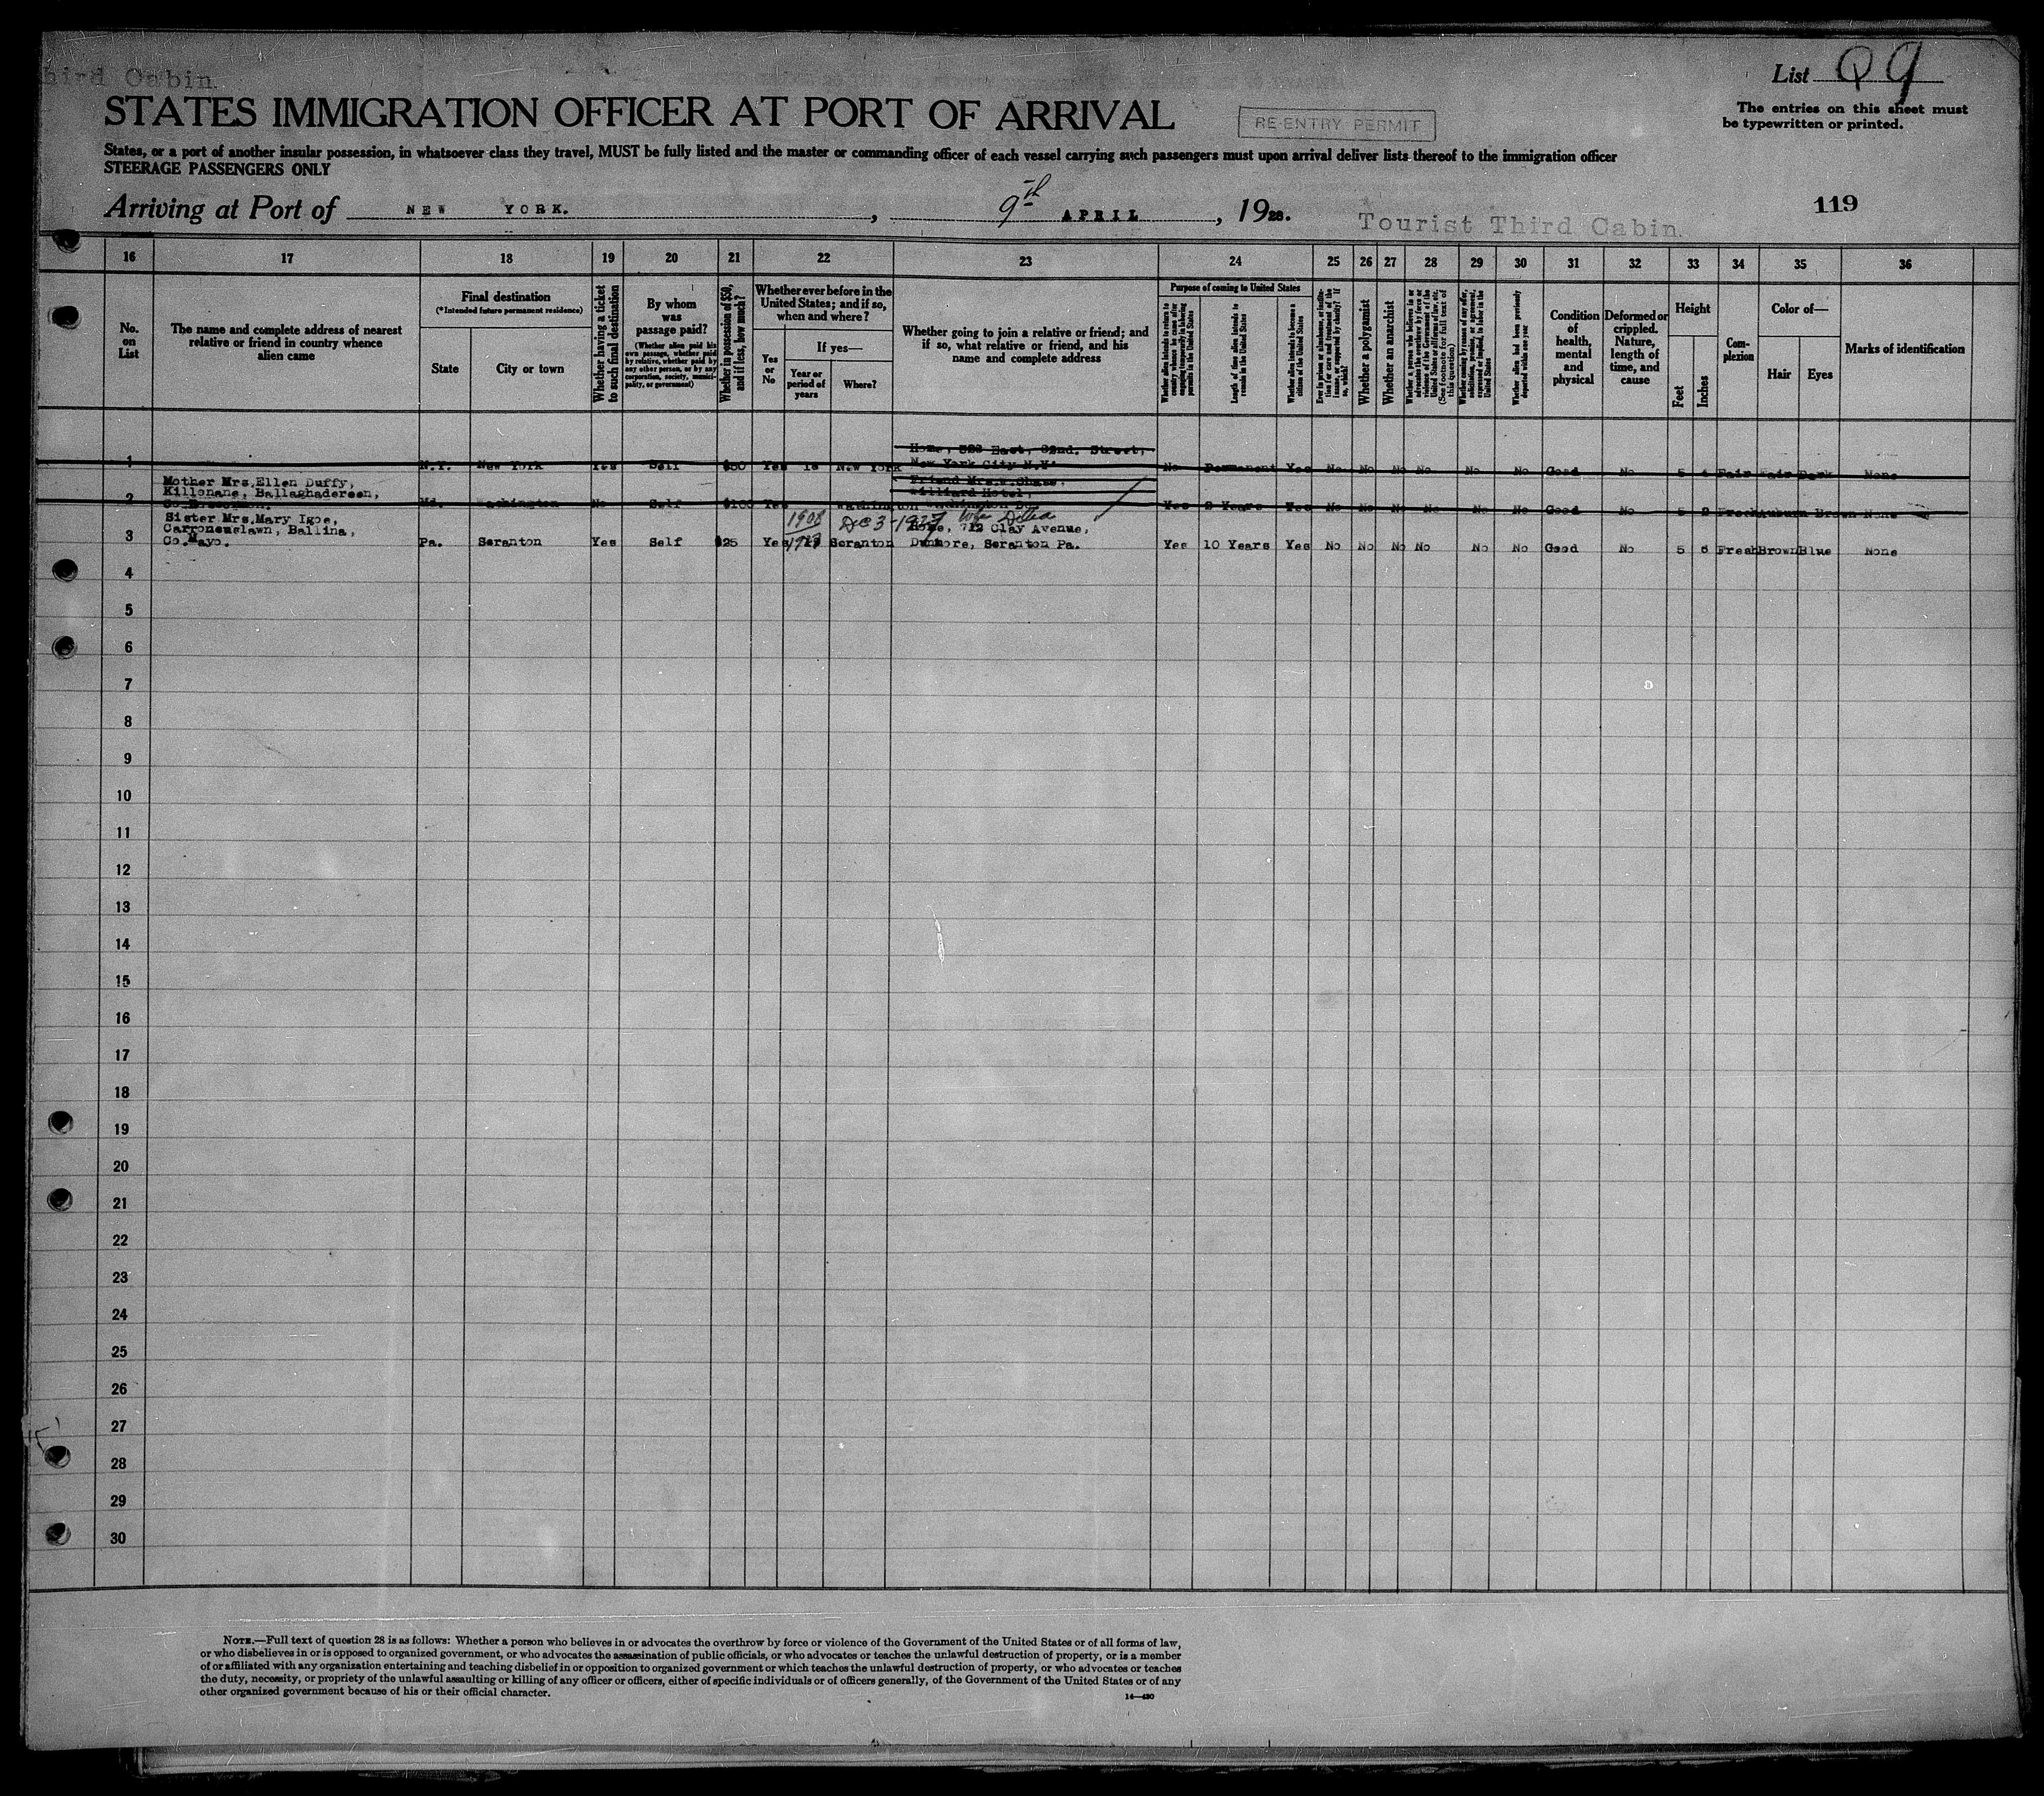 hird Cabin.
List Q 9
STATES IMMIGRATION OFFICER AT PORT OF ARRIVAL
RE-ENTRY PERMIT
The entries on this sheet must
be typewritten or printed.
States, or a port of another insular possession, in whatsoever class they travel, MUST be fully listed and the master or commanding officer of each vessel carrying such passengers must upon arrival deliver lists thereof to the immigration officer
STEERAGE PASSENGERS ONLY
Arriving at Port of NEW YORK. , 9th APRIL , 1928.
119
Tourist Third Cabin.
16 17 18 19 20 21 22 23 24 25 26 27 28 29 30 31 32 33 34 35 36
No. on List
The name and complete address of nearest relative or friend in country whence alien came
Final destination
(*Intended future permanent residence)
State
City or town
Whether having a ticket to such final destination
By whom was passage paid?
(Whether alien paid his own passage, whether paid by relative, whether paid by any other person, or by any corporation, society, municipality, or government)
Whether in possession of $50, and if less, how much?
Whether ever before in the United States; and if so, when and where?
Yes or No
If yes—
Year or period of years
Where?
Whether going to join a relative or friend; and if so, what relative or friend, and his name and complete address
Purpose of coming to United States
Length of time alien intends to remain in the United States
Whether alien intends to become a citizen of the United States
Whether a polygamist
Whether an anarchist
Whether alien had been previously deported within one year
Condition of health, mental and physical
Deformed or crippled. Nature, length of time, and cause
Height
Feet
Inches
Complexion
Color of—
Hair
Eyes
Marks of identification
Home, 323 East, 32nd. Street,
1 N.Y. New York Yes Self $50 Yes New York New York City N.Y. No Permanent Yes No No No No No No Good No 5 4 Fair Fair Dark None
Mother Mrs.Ellen Duffy,
Friend Mrs.W.Chase,
Killonane, Ballaghadereen,
Williard Hotel,
2 Md. Washington No Self $100 Yes Washington Washington Yes 2 Years Yes No No No No No No Good No 5 2 Fresh Auburn Brown None
Sister Mrs.Mary Igoe,
1908 Dec 3-1927 Wife Delia
Carroneuslawn, Ballina,
Home, 712 Clay Avenue,
3 Co.Mayo. Pa. Scranton Yes Self $25 Yes 1927 Scranton Dunmore, Scranton Pa. Yes 10 Years Yes No No No No No No Good No 5 6 Fresh Brown Blue None
4
5
6
7
8
9
10
11
12
13
14
15
16
17
18
19
20
21
22
23
24
25
26
27
28
29
30
NOTE.—Full text of question 28 is as follows: Whether a person who believes in or advocates the overthrow by force or violence of the Government of the United States or of all forms of law,
or who disbelieves in or is opposed to organized government, or who advocates the assassination of public officials, or who advocates or teaches the unlawful destruction of property, or is a member
of or affiliated with any organization entertaining and teaching disbelief in or opposition to organized government or which teaches the unlawful destruction of property, or who advocates or teaches
the duty, necessity, or propriety of the unlawful assaulting or killing of any officer or officers, either of specific individuals or of officers generally, of the Government of the United States or of any
other organized government because of his or their official character.
14—420